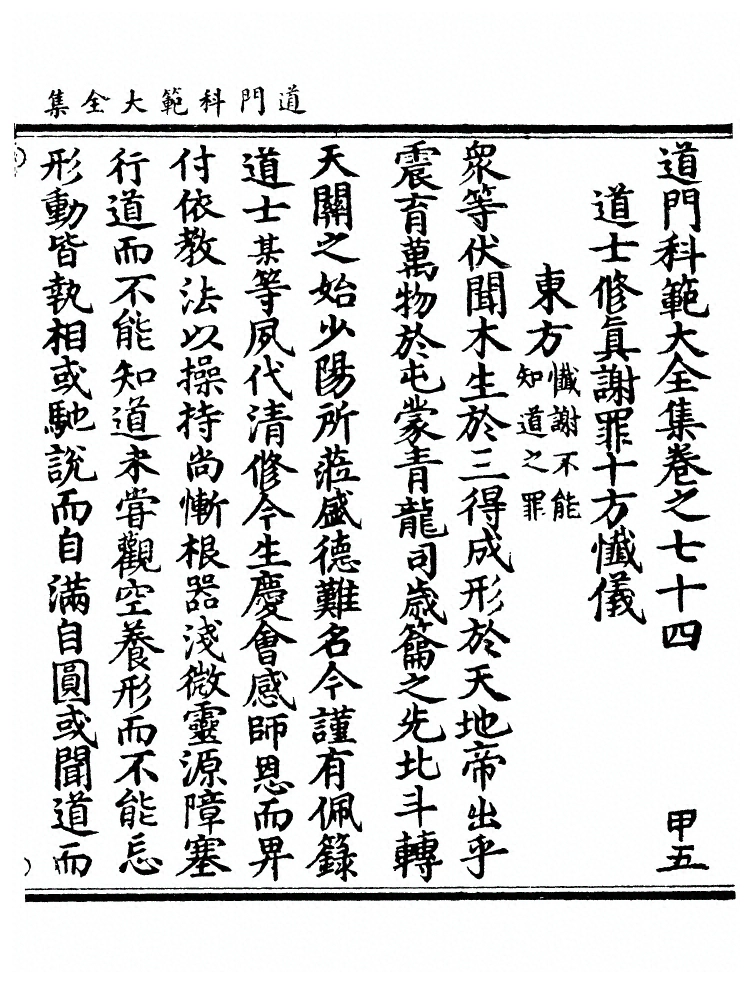 道門科範大全集
道門科範大全集卷之七十四 甲五
道士修眞謝罪十方懺儀
東方懺謝不能知道之罪
衆等伏聞木生於三得成形於天地帝出乎
震育萬物於屯蒙青龍司歲籥之先北斗轉
天關之始少陽所蒞盛德難名今謹有佩籙
道士某等夙代清修今生慶會感師恩而畀
付依教法以操持尚慚根器淺微靈源障塞
行道而不能知道未嘗觀空養形而不能忘
形動皆執相或馳說而自滿自圓或聞道而